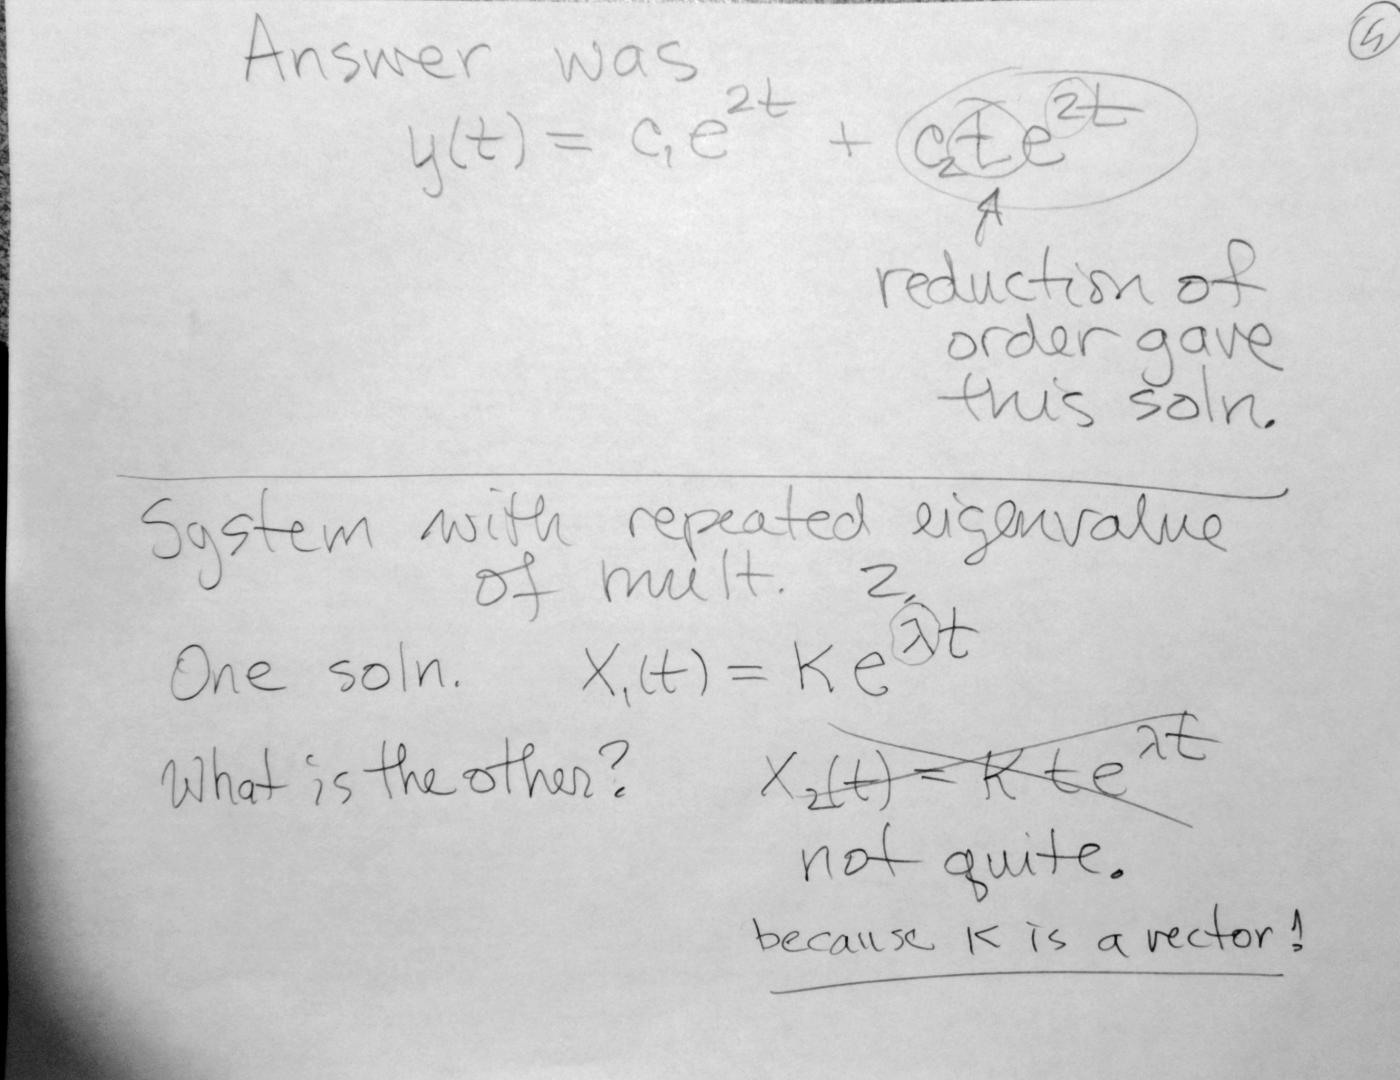 Answer was
y(t) = c₁e^{2t} + c₂te^{2t}
reduction of
order gave
this soln.
System with repeated eigenvalue
of mult. 2.
One soln. X₁(t) = Ke^{λt}
What is the other? X₂(t) = Kte^{λt}
not quite.
because K is a vector!